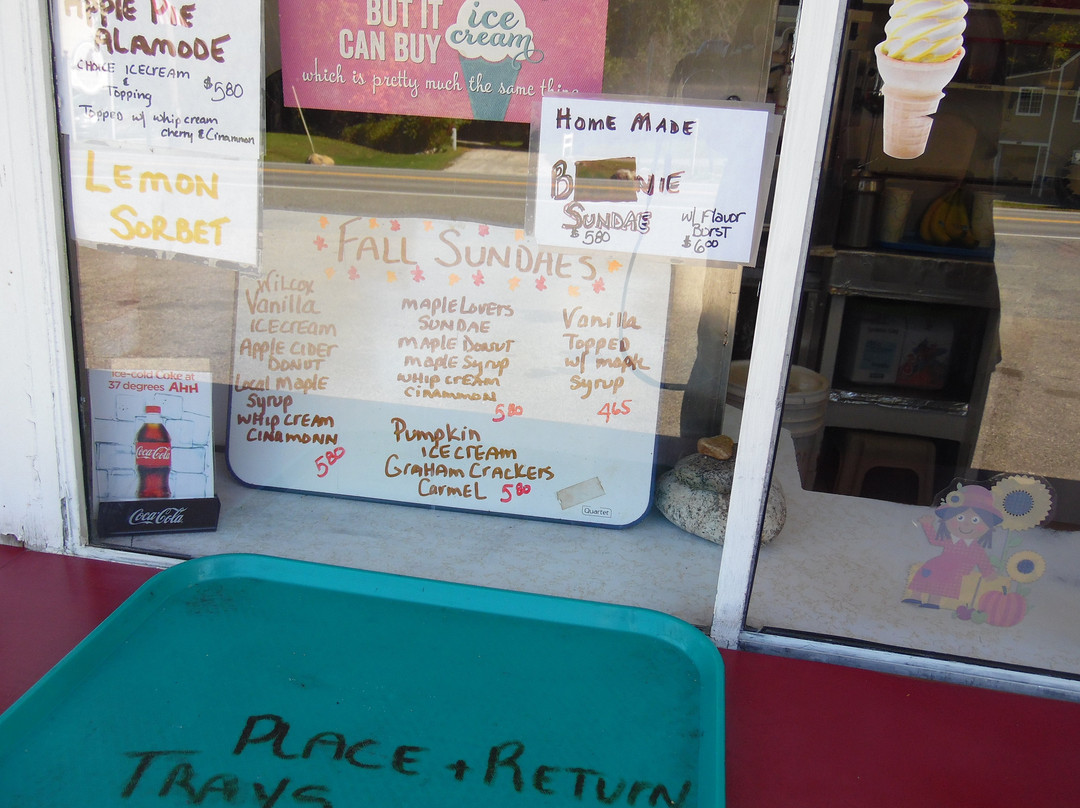 APPLE PIE
ALAMODE
CHOICE ICECREAM
&
Topping
$5.80
Topped w/ whip cream
cherry & Cinnammon
LEMON
SORBET
BUT IT
CAN BUY
ice
cream
which is pretty much the same thing
HOME MADE
SUNDAE
$5.80
w/ Flavor
Burst
$6.00
FALL SUNDAES
Wilcox
Vanilla
ICECREAM
Apple CIDER
DONUT
Local Maple
Syrup
WHIP CREAM
CINAMONN
5.80
MAPLE LOVERS
SUNDAE
MAPLE DONUT
MAPLE SYRUP
WHIP CREAM
CINNAMMON
5.80
Vanilla
Topped
w/ maple
Syrup
4.65
Pumpkin
ICE CREAM
GRAHAM CRACKERS
CARMEL 5.80
Quartet
Ice-cold Coke at
37 degrees AHH
Coca-Cola
Coca-Cola
PLACE + RETURN
TRAYS